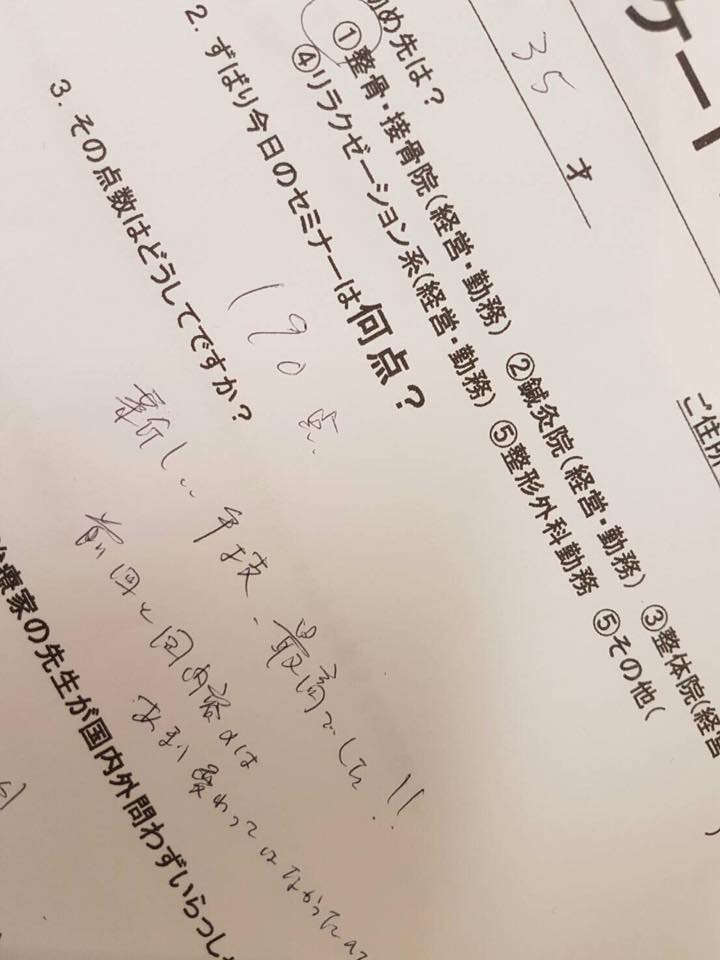 ケート
ご住所
35 才
め先は？
①整骨・接骨院(経営・勤務) ②鍼灸院(経営・勤務) ③整体院(経営
④リラクゼーション系(経営・勤務) ⑤整形外科勤務 ⑤その他( )
2. ずばり今日のセミナーは何点？
190点
3. その点数はどうしてですか？
新しい手技、最高でした!!
前回と回内容は
あまり変わってはなかったの
療家の先生が国内外問わずいらっし